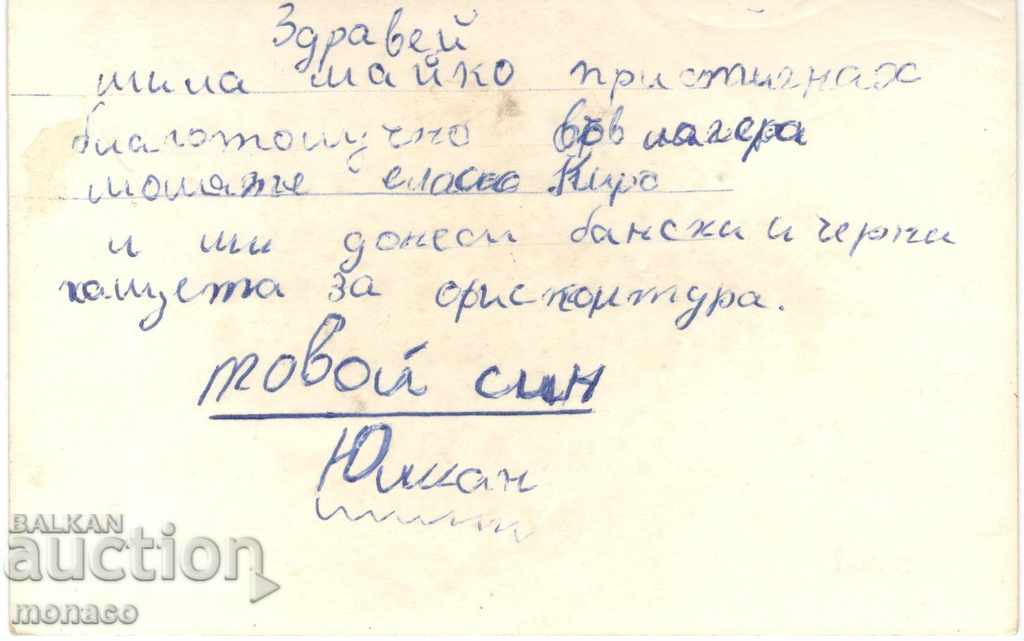 Здравей
мила майко пристигнах
благотолучно във лагера
Кирo
и ми донеси бански и черни
за фискултура.
твой син
Юлиан
BALKAN
auction
monaco